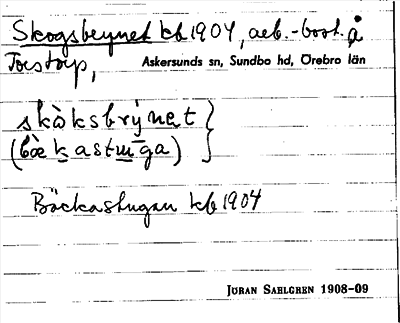 Skogsbrynet kb 1904, aeb.-bost. å
Torstorp, Askersunds sn, Sundbo hd, Örebro län
skòksbrýnet
(bækastūga)
Bäckastugan kb 1904
JÖRAN SAHLGREN 1908-09